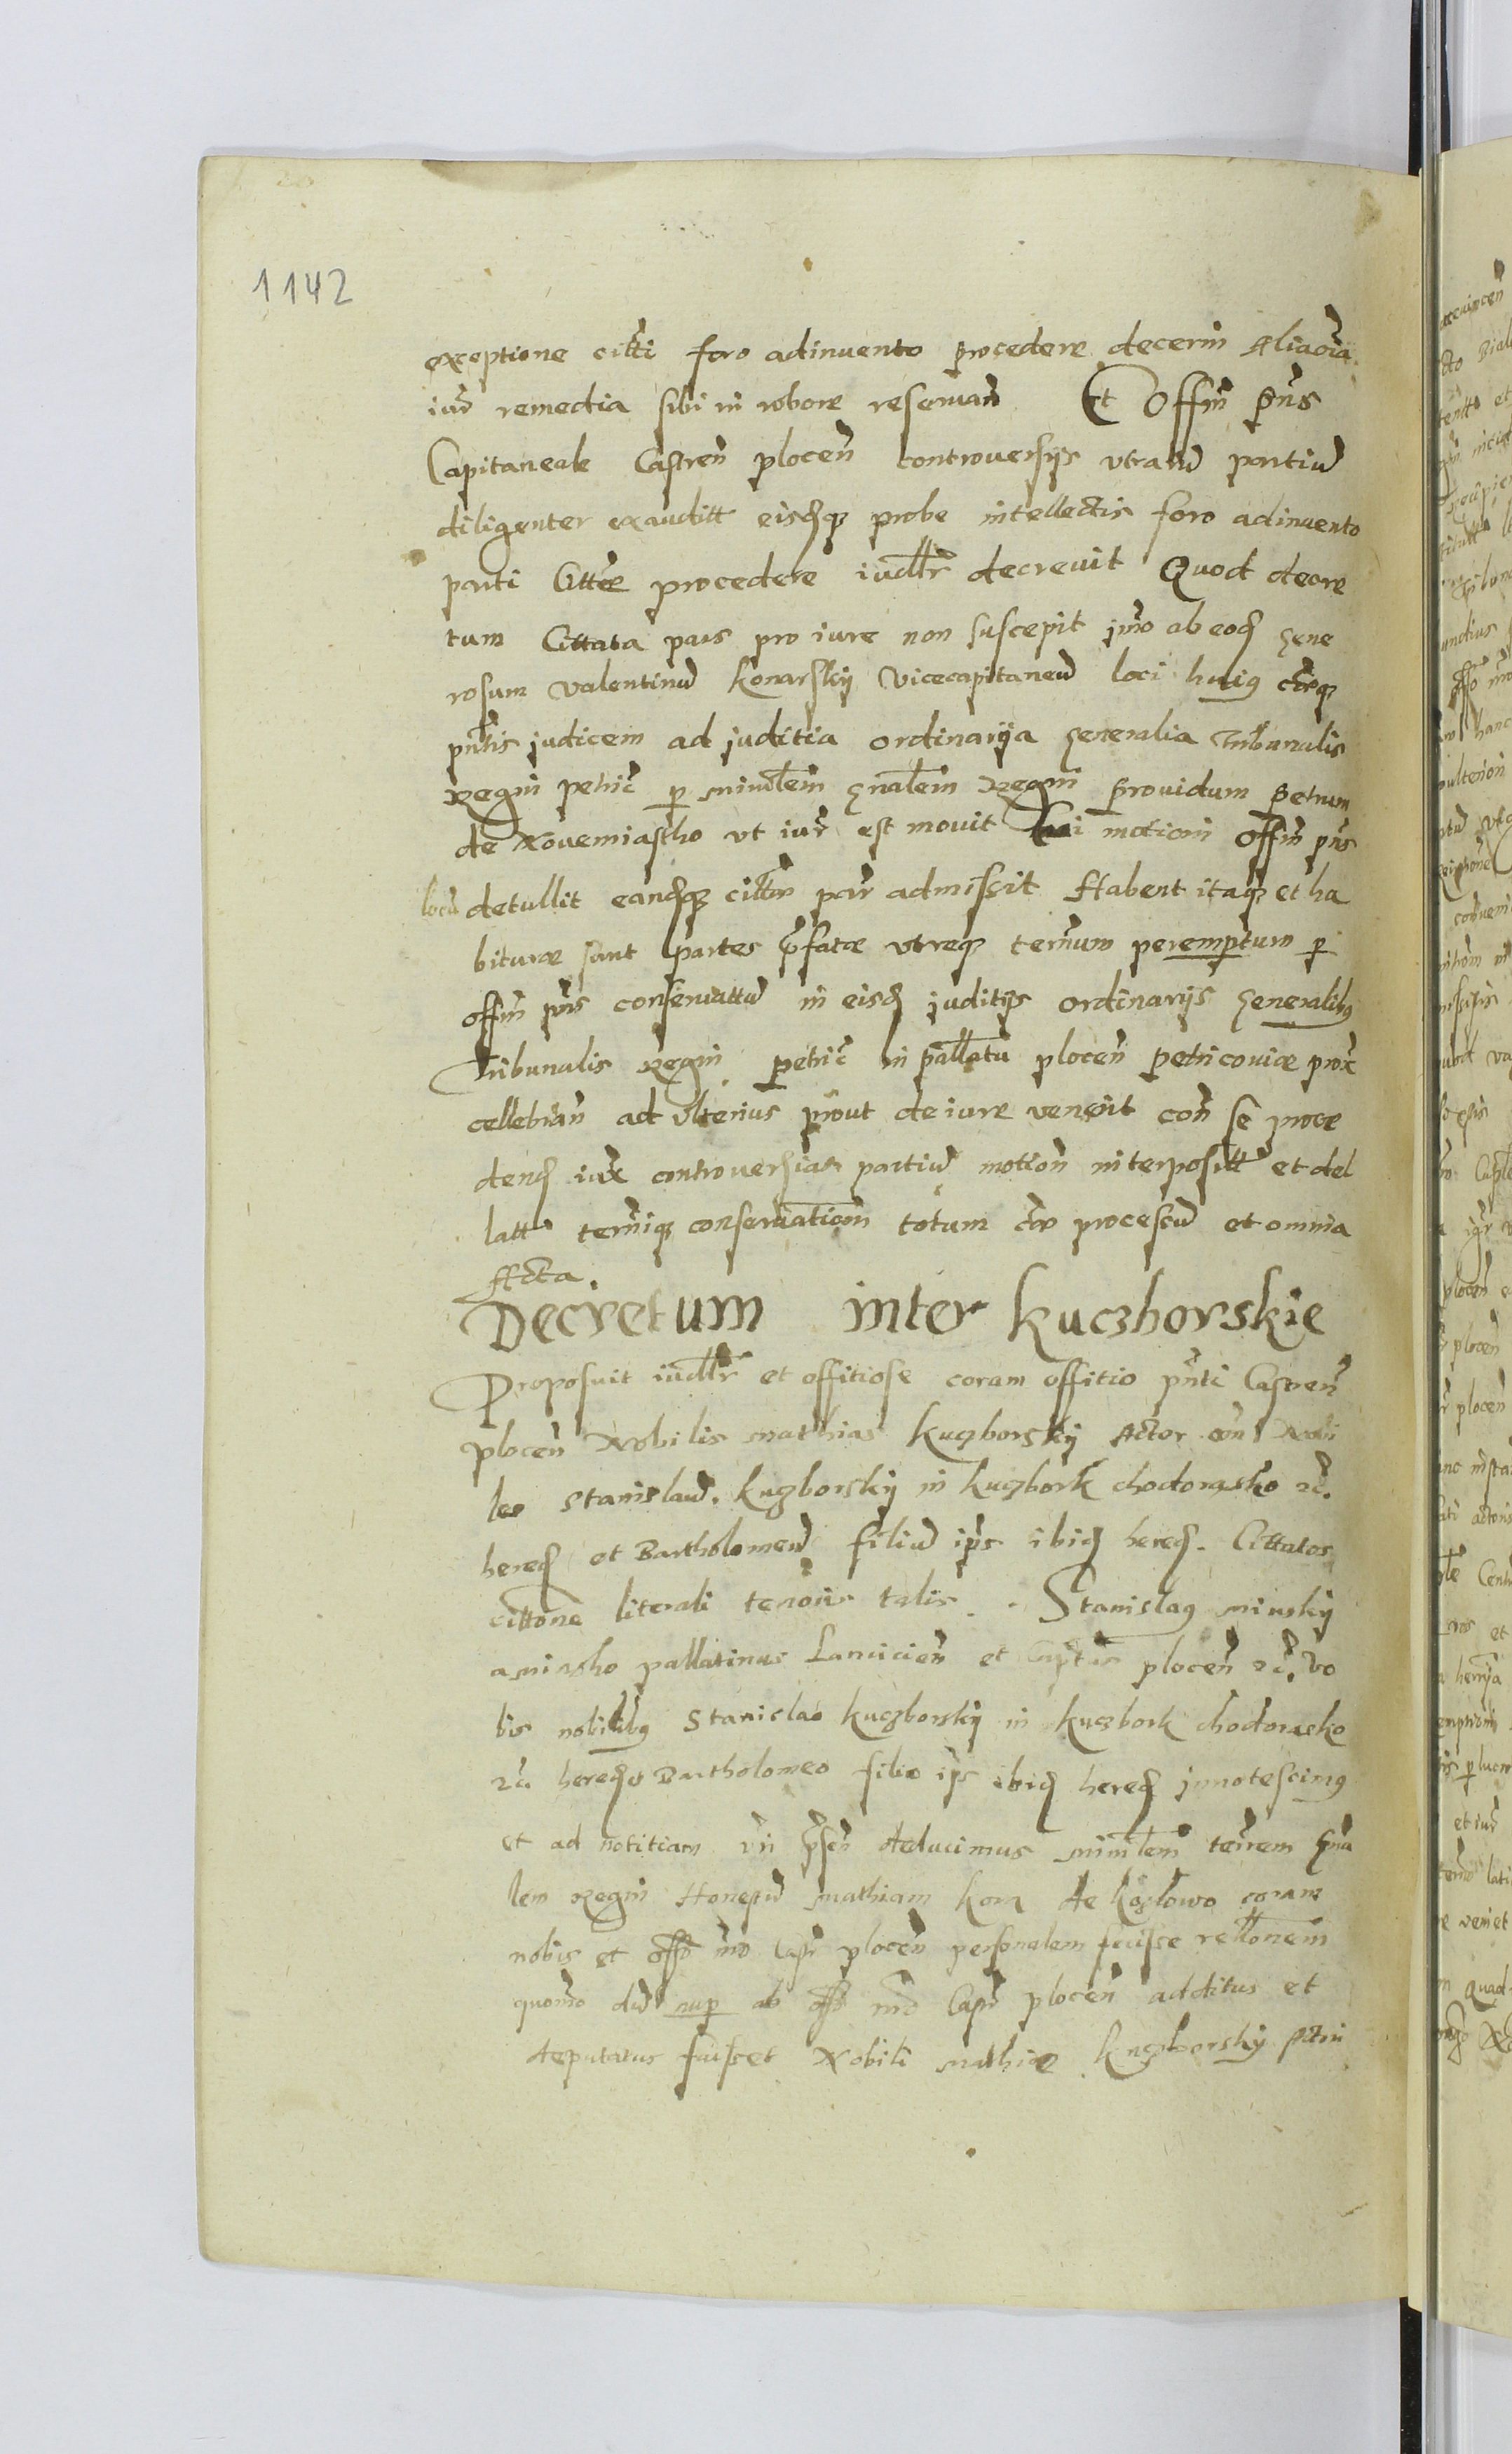 1142
exceptione citti foro adinuento procedere decerni Aliaoia
iur remedia sibi in robore reseruan Et Offm pns
Capitaneale Castren plocen controuersijs vtrarum partium
diligenter exauditt eisdque probe intellectis foro adinuento
parti Cittae procedere iudlr decreuit Quod decre
tum Cittata pars pro iure non suscepit jmo ab eod gene
rosum valentinum Konarskij vicecapitaneum loci huius
pntis judicem ad juditia ordinarija generalia Tribunalis
Regni petric per ministlem gnalem Regni prouidum Petrum
de Novemiastho vt iur est mouit Cui motioni offm pns
locum detullit eandque citton par admissit Habent itaque et ha
biturae sunt partes pfatae vtreque termum peremptum per
offm pns conseruattum in eisd juditijs ordinarijs generalibus
Tribunalis Regni petric in pallatu plocen petricouiae prox
cellebran ad vlterius prout de iure venerit con se proce
dend iux controuersiar partium motion interposittam et del
lattam termique conseruationem totum processum et omnia
Acta.
Decretum inter kuczborskie
Proposuit iudlr et offitiose coram offitio pnti Castren
plocen Nobilis Mathias Kuczborskij Actor con Nobi
les Stanislaum Kuczborskij in Kuczbork chodorasko zc.
hered et Bartholomeum filium ips ibid hered. Cittatos
cittone literali tenoris talis. Stanislaus Minskij
a Minsko pallatinus Lancicien et plocen zc. vo
bis nobilibus Stanislao kuczborskij in kuczbork chodorasko
zc hered Bartholomeo filio ips ibid hered jnnotescimus
et ad notitiam vri deducimus minlem terrem gna
lem Regni Honestum Mathiam kora de kozlowo coram
nobis et offo nro Castr plocen personalem fecisse relationem
quomo dum nuper ab offo nro Capt plocen additus et
deputatus fuisset Nobili Mathiae kuczborskij